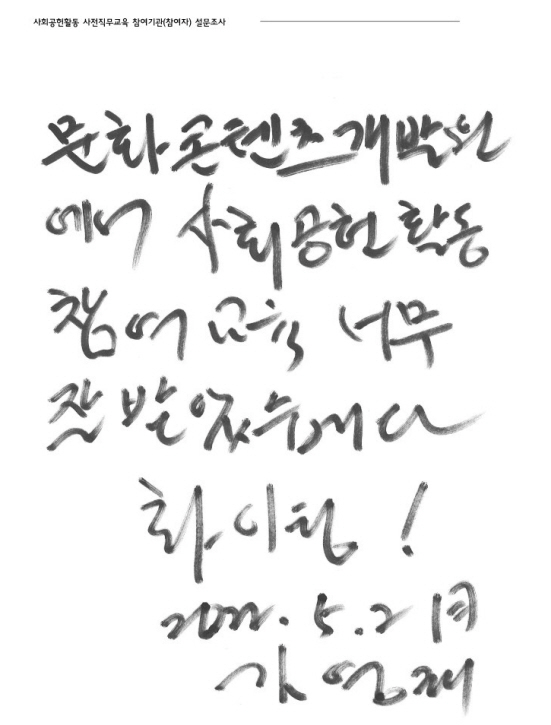 사회공헌활동 사전직무교육 참여기관(참여자) 설문조사
문화콘텐츠개발원
에서 사회공헌활동
참여 교육 너무
잘 받았습니다
화이팅!
2022. 5. 2 月